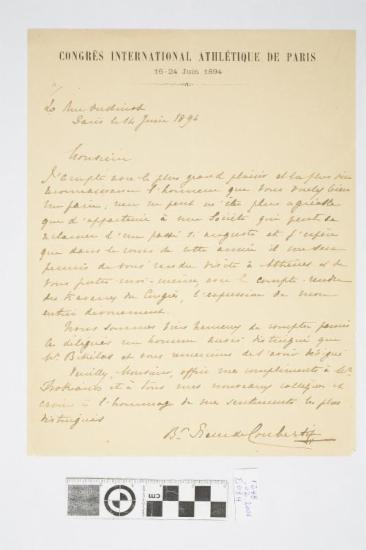 CONGRÈS INTERNATIONAL ATHLÉTIQUE DE PARIS
16-24 Juin 1894
20 Rue Oudinot
Paris le 14 Juin 1894
Monsieur
J'accepte avec le plus grand plaisir et la plus vive
reconnaissance l'honneur que vous voulez bien
me faire; rien ne peut m'être plus agréable
que d'appartenir à une Société qui peut se
réclamer d'un passé si auguste et j'espère
que dans le cours de cette année il me sera
permis de vous rendre visite à Athènes et de
vous porter moi-même, avec le compte-rendu
des travaux du Congrès, l'expression de mon
entier dévouement.
Nous sommes très heureux de compter parmi
les délégués un homme aussi distingué que
Mr Bikélas et vous remercions de l'avoir désigné
Veuillez, Monsieur, offrir mes compliments à Mr
et à tous mes nouveaux collègues et
croire à l'hommage de mes sentiments les plus
distingués
Bn Pierre de Coubertin
CM